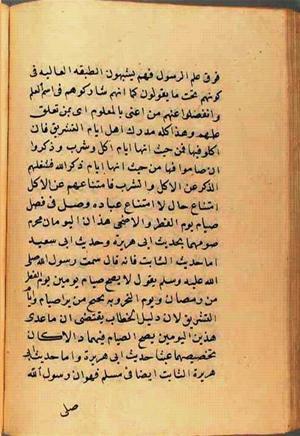 فرق علم الرسول فهم يشبهون الطبقه العاليه فى
كونهم تحت ما يقولون كما انهم شاركوهم فى اسم العلم
وانفصلوا عنهم من اعنى بالمعلوم اى بمن تعلق
علمهم وهذا كله مدرك اهل ايام التشريق فان
اكلوا فيها فمن حيث انها ايام اكل وشرب وذكروا
ان صاموا فيها من حيث انها ايام ذكر الله فشغلهم
الذكر عن الاكل والشرب فامتناعهم عن الاكل
امتناع حال لا امتناع عباده وصل فى فصل
صيام يوم الفطر والاضحى هذان اليومان محرم
صومهما بحديث ابى هريرة وحديث ابى سعيد
اما حديث الثابت فانه قال سمعت رسول الله صلى
الله عليه وسلم يقول لا يصح صيام يومين يوم الفطر
من رمضان ويوم النحر وبه يصح من يرا صيام ايام
التشريق لان دليل الخطاب يقتضى ان ما عدى
هذين اليومين يصح الصيام فيهما والا كان
تخصيصهما عبثا حديث ابى هريرة واما حديث ابى
هريرة الثابت ايضا فى مسلم فهو ان رسول الله
صلى